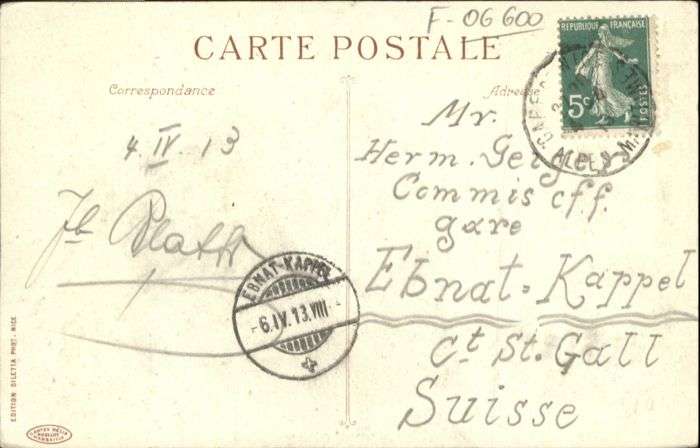 F-06600
CARTE POSTALE
RÉPUBLIQUE FRANÇAISE
5c
POSTES
ALPES-M
Correspondance
4 IV. 13
Mr.
Herm. Geiger
Commis cff.
gare
Ebnat-Kappel
Ct St. Gall
Suisse
EBNAT-KAPPEL
-6.IV.13.VIII-
EDITION GILETTA PHOT. NICE